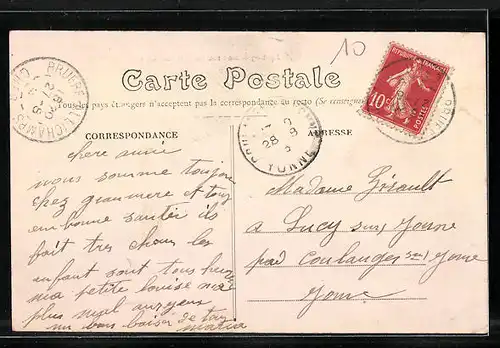 10
Carte Postale
Tous les pays étrangers n'acceptent pas la correspondance au recto (Se renseigner
CORRESPONDANCE
ADRESSE
REPUBLIQUE FRANÇAISE
10c
POSTES
BRUERE-ALLICHAMPS
CHER
YONNE
28
chere amie
nous somme toujour
chez granmere et tous
en bonne santée ils
fait tres chau les
enfant sont tous heureux
ma petite louise na
plus mal au yeux
un bons baiser de tous
maria
Madame
a Lucy sur Yonne
par Coulanges sur Yonne
Yonne